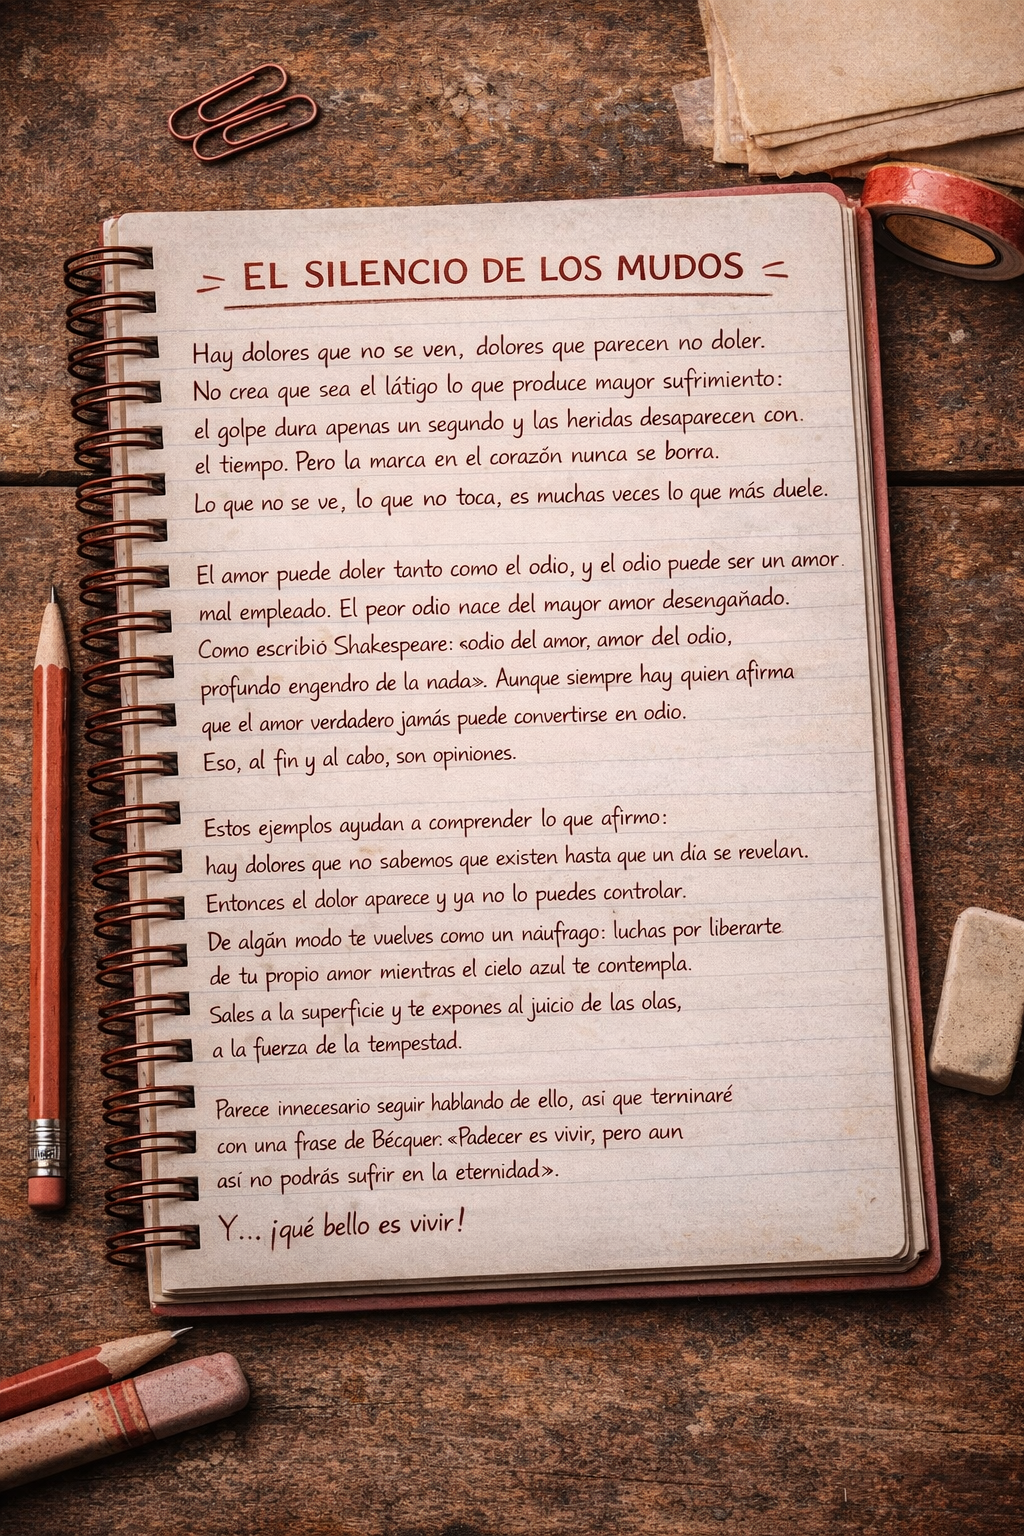 EL SILENCIO DE LOS MUDOS
Hay dolores que no se ven, dolores que parecen no doler.
No crea que sea el látigo lo que produce mayor sufrimiento:
el golpe dura apenas un segundo y las heridas desaparecen con.
el tiempo. Pero la marca en el corazón nunca se borra.
Lo que no se ve, lo que no toca, es muchas veces lo que más duele.
El amor puede doler tanto como el odio, y el odio puede ser un amor.
mal empleado. El peor odio nace del mayor amor desengañado.
Como escribió Shakespeare: «odio del amor, amor del odio,
profundo engendro de la nada». Aunque siempre hay quien afirma
que el amor verdadero jamás puede convertirse en odio.
Eso, al fin y al cabo, son opiniones.
Estos ejemplos ayudan a comprender lo que afirmo:
hay dolores que no sabemos que existen hasta que un día se revelan.
Entonces el dolor aparece y ya no lo puedes controlar.
De algán modo te vuelves como un náufrago: luchas por liberarte
de tu propio amor mientras el cielo azul te contempla.
Sales a la superficie y te expones al juicio de las olas,
a la fuerza de la tempestad.
Parece innecesario seguir hablando de ello, así que terninaré
con una frase de Bécquer: «Padecer es vivir, pero aun
así no podrás sufrir en la eternidad».
Y... ¡qué bello es vivir!